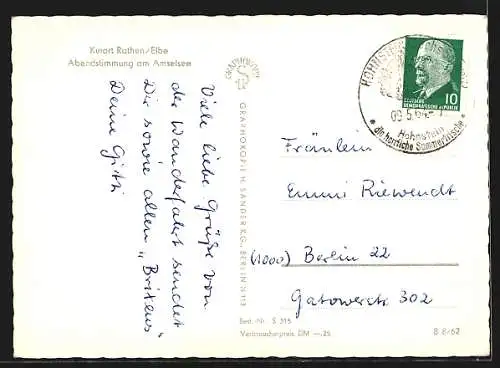 Kurort Rathen/Elbe
Abendstimmung am Amselsee
Viele liebe Grüße von
der Wanderfahrt sendet
Dir sowie allen „Britzens"
Deine Gitti
GRAPHOKOPIE H. SANDER KG., BERLIN N 113
Best.-Nr. S 315
Verbraucherpreis DM —.25
HOHNSTEIN
09.5.64
Hohnstein
die herrliche Sommerfrische
DEUTSCHE
DEMOKRATISCHE REPUBLIK
10
Fräulein
Emmi Riewendt
(1000) Berlin 22
Gatowerstr. 302
B 8/62